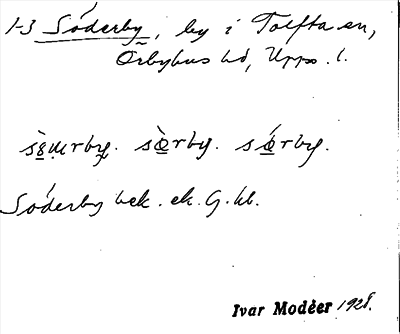 1-3 Söderby, by i Tolfta sn,
Örbyhus hd, Upps. l.
sò̱rby. só̱rby.
Söderby bek. ek. G. kb.
Ivar Modéer 1928.